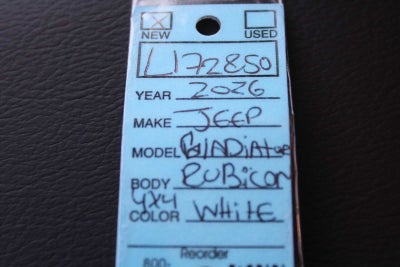 NEW USED
L172850
YEAR 2026
MAKE JEEP
MODEL GlADiAtor
BODY RUBicon
4X4
COLOR WHiTE
Reorder
800-